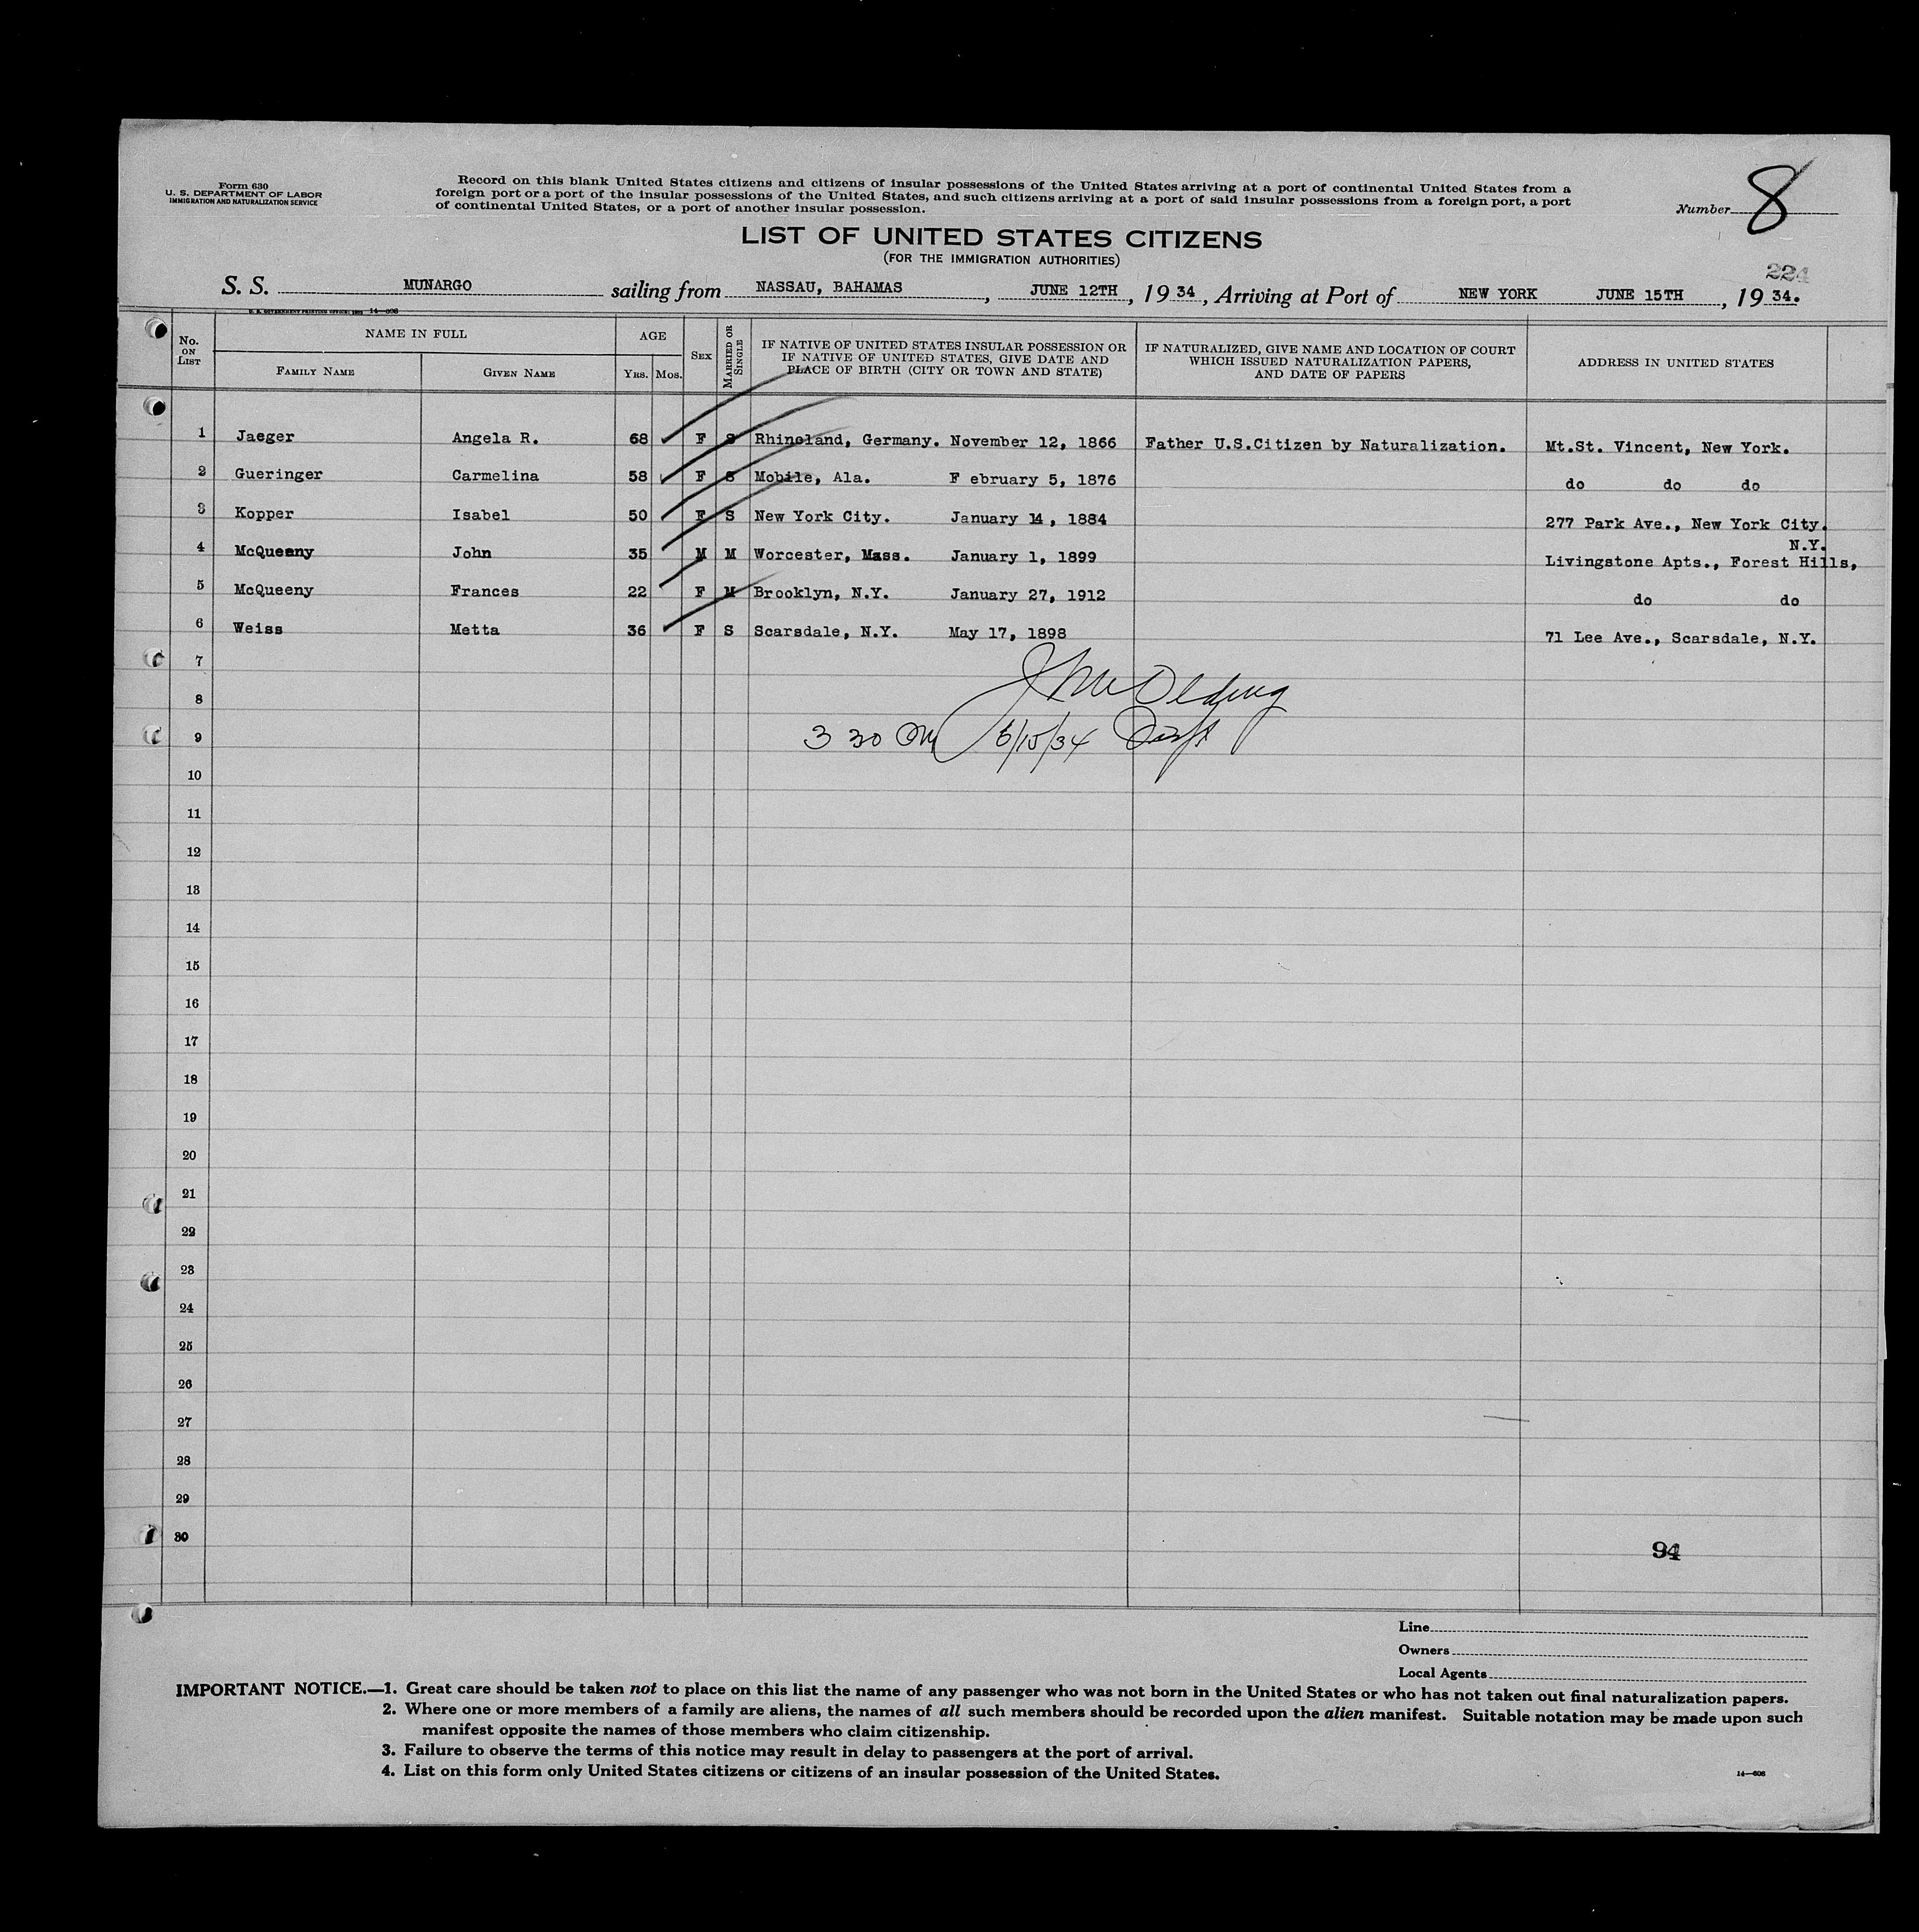 Form 630
U. S. DEPARTMENT OF LABOR
IMMIGRATION AND NATURALIZATION SERVICE
Record on this blank United States citizens and citizens of insular possessions of the United States arriving at a port of continental United States from a
foreign port or a port of the insular possessions of the United States, and such citizens arriving at a port of said insular possessions from a foreign port, a port
of continental United States, or a port of another insular possession.
Number 8
LIST OF UNITED STATES CITIZENS
(FOR THE IMMIGRATION AUTHORITIES)
224
S. S. MUNARGO sailing from NASSAU, BAHAMAS, JUNE 12TH, 19 34, Arriving at Port of NEW YORK JUNE 15TH, 19 34.
No. ON LIST
NAME IN FULL
FAMILY NAME
GIVEN NAME
AGE
YRS. MOS.
SEX
MARRIED OR SINGLE
IF NATIVE OF UNITED STATES INSULAR POSSESSION OR
IF NATIVE OF UNITED STATES, GIVE DATE AND
PLACE OF BIRTH (CITY OR TOWN AND STATE)
IF NATURALIZED, GIVE NAME AND LOCATION OF COURT
WHICH ISSUED NATURALIZATION PAPERS,
AND DATE OF PAPERS
ADDRESS IN UNITED STATES
1 Jaeger Angela R. 68 F S Rhineland, Germany. November 12, 1866 Father U.S.Citizen by Naturalization. Mt.St. Vincent, New York.
2 Gueringer Carmelina 58 F S Mobile, Ala. F ebruary 5, 1876 do do do
3 Kopper Isabel 50 F S New York City. January 14, 1884 277 Park Ave., New York City.
N.Y.
4 McQueeny John 35 M M Worcester, Mass. January 1, 1899 Livingstone Apts., Forest Hills,
5 McQueeny Frances 22 F M Brooklyn, N.Y. January 27, 1912 do do
6 Weiss Metta 36 F S Scarsdale, N.Y. May 17, 1898 71 Lee Ave., Scarsdale, N.Y.
7
8
9 3 30 6/15/34
10
11
12
13
14
15
16
17
18
19
20
21
22
23
24
25
26
27
28
29
30
94
Line
Owners
Local Agents
IMPORTANT NOTICE.—1. Great care should be taken not to place on this list the name of any passenger who was not born in the United States or who has not taken out final naturalization papers.
2. Where one or more members of a family are aliens, the names of all such members should be recorded upon the alien manifest. Suitable notation may be made upon such
manifest opposite the names of those members who claim citizenship.
3. Failure to observe the terms of this notice may result in delay to passengers at the port of arrival.
4. List on this form only United States citizens or citizens of an insular possession of the United States.
14—608